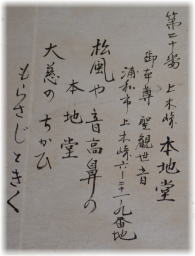 第二十番 上木崎 本地堂
御本尊 聖観世音
浦和市上木崎六ー三十一ー九番地
松風や音高鼻の
本地堂
大慈のちかひ
もらさじときく